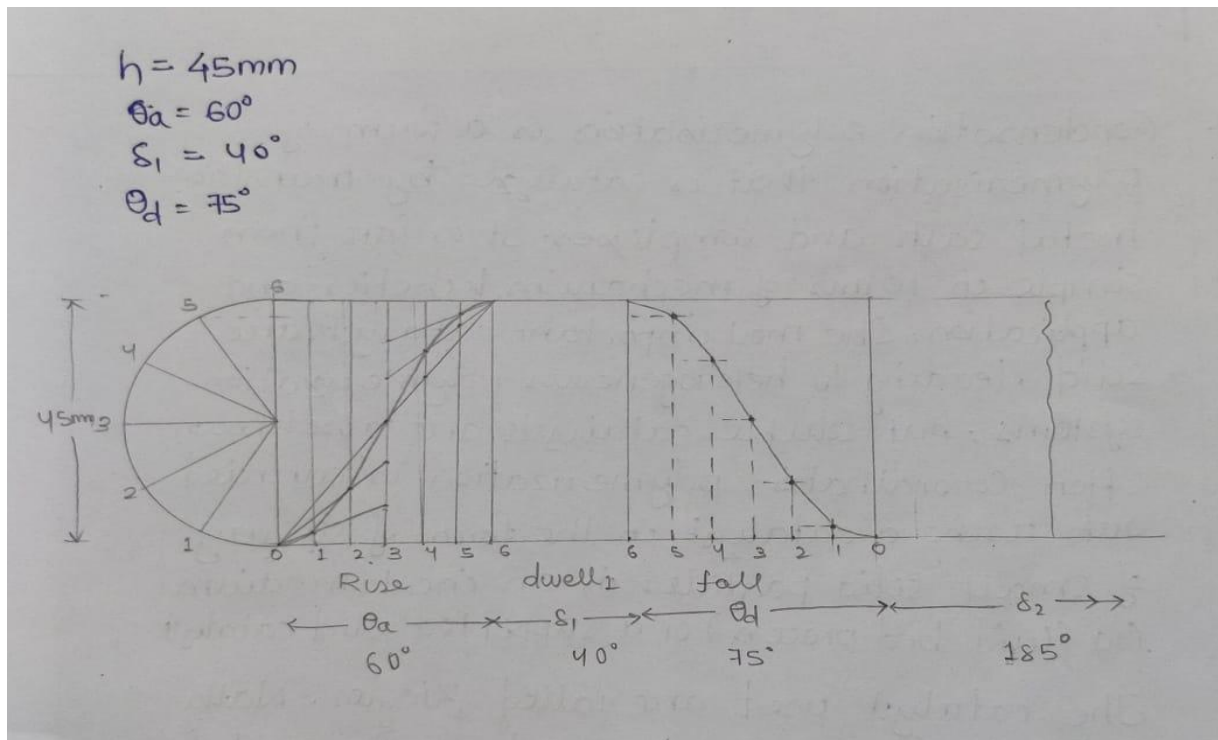 h = 45mm
θa = 60°
δ₁ = 40°
θd = 75°
6
5
4
45mm 3
2
1
0 1 2 3 4 5 6 6 5 4 3 2 1 0
Rise dwell1 fall
θa δ₁ θd δ₂
60° 40° 75° 185°